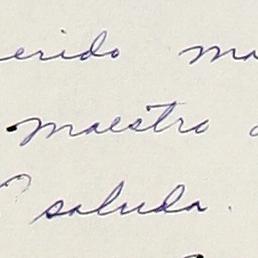 erido ma
maestro
saluda.